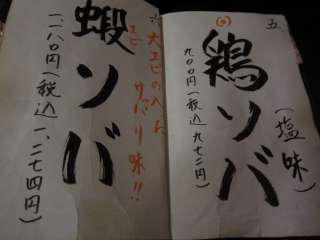 五、
鶏ソバ
(塩味)
九〇〇円(税込 九七二円)
六、
蝦ソバ
エビ
大エビの
サッパリ味!!
一、一八〇円(税込 一、二七四円)